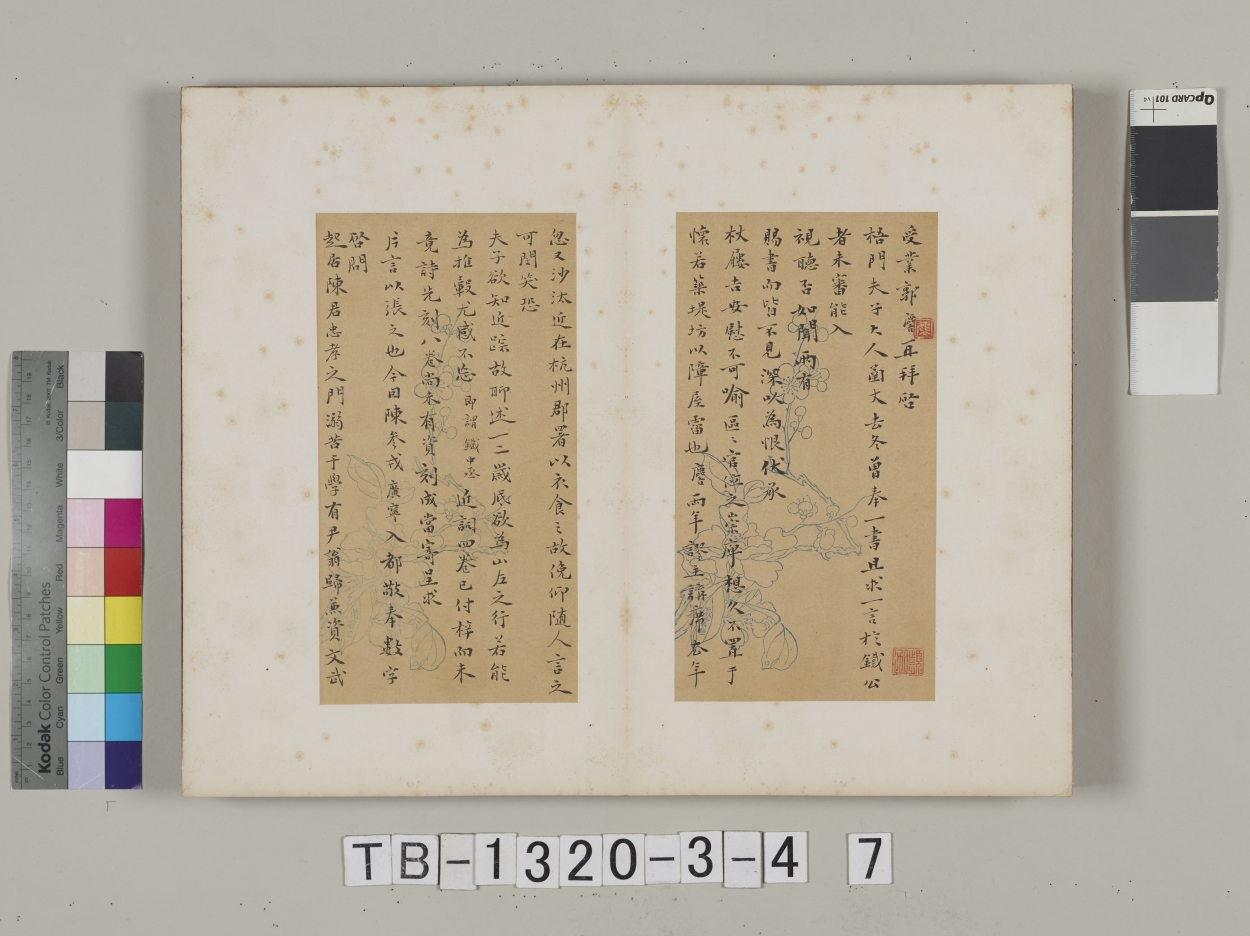 受業郭麐再拜啓
梧門夫子大人函丈去冬曾奉一書且求一言於鐵公
者未審能入
視聽否如聞兩有
賜書而皆不見深以為恨伏承
杖履吉安慰不可喻區〻官澤之崇庳想久不罣于
懷若築堤坊以障屋霤也麐兩年謬主講席去年
忽又沙汰近在杭州郡署以衣食〻故俛仰随人言之
可閔笑恐
夫子欲知近踪故聊述一二歲底欲為山左之行若能
為推轂尤感不忘即謂鐵中丞近詞四卷已付梓而未
竟詩先刻八卷尚未有資刻成當寄呈求
片言以張之也今因陳參戎廣寧入都敬奉數字
啓問
起居陳君忠孝之門溺苦于學有尹翁歸兼資文武
Kodak Color Control Patches
Blue Cyan Green Yellow Red Magenta White 3/Color Black
QPCARD 101 v4
TB-1320-3-4 7